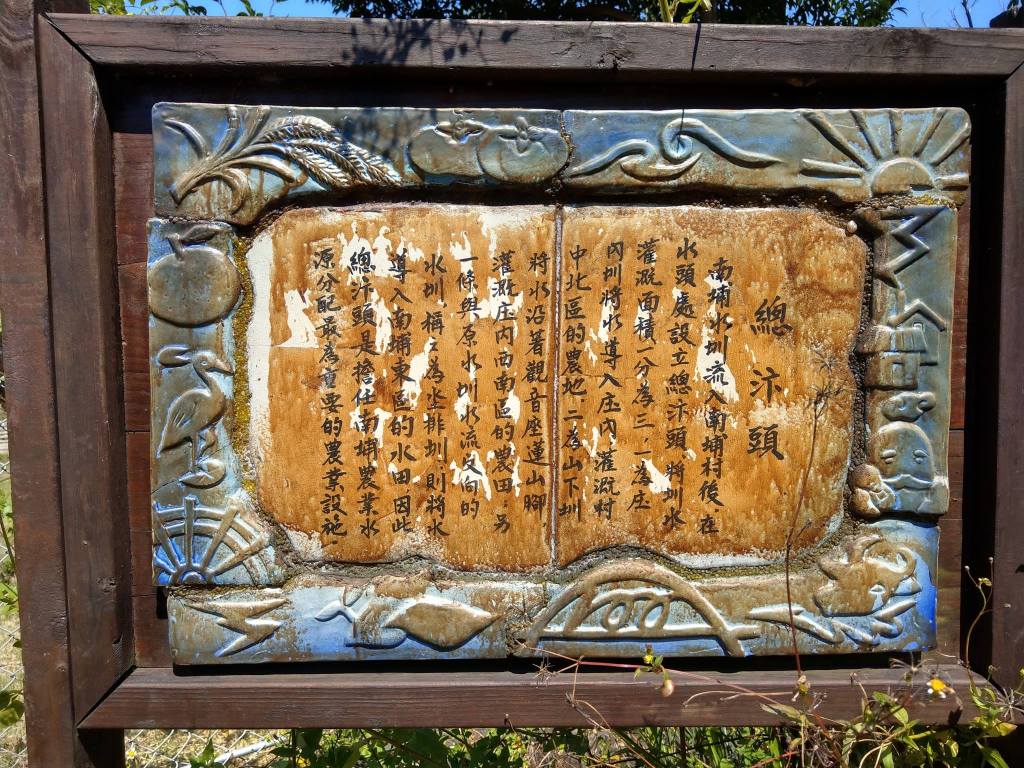 總汴頭
南埔水圳流入南埔村後，在
水頭處設立總汴頭，將圳水
灌溉面積一分為三，一為庄
內圳將水導入庄內，灌溉村
中北區的農地，二為山下圳
將水沿著觀音座蓮山腳
灌溉庄內西南區的農田，另
一條與原水圳水流反向的
水圳，稱之為坔排圳，則將水
導入南埔東區的水田，因此
總汴頭是擔任南埔農業水
源分配最為重要的農業設施